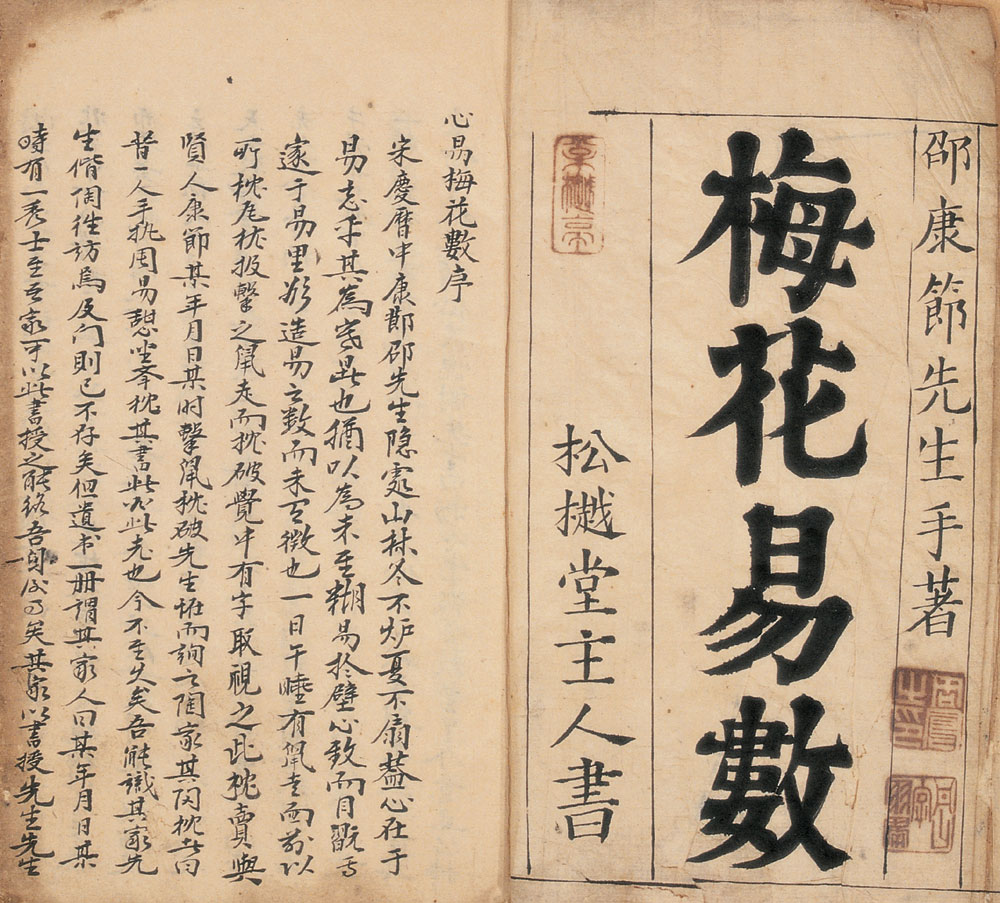 邵康節先生手著
梅花易數
松樾堂主人書
心易梅花數序
宋慶曆中康節邵先生隐處山林冬不炉夏不扇蓋心在于
易忘乎其為寒暑也猶以為未至糊易於壁心致而目翫焉
邃于易理欲造易之數而未有徵也一日午睡有鼠走而前以
所枕瓦枕投擊之鼠走而枕破覺中有字取視之此枕賣與
賢人康節某年月日某时擊鼠枕破先生怪而詢之陶家其閃枕者曰
昔一人手执周易憩坐举枕其書此必此老也今不至久矣吾能識其家先
生偕陶往訪焉及门則已不存矣但遺书一册謂其家人曰某年月日某
時有一秀士至吾家可以此書授之能终吾身后事矣其家以書授先生先生